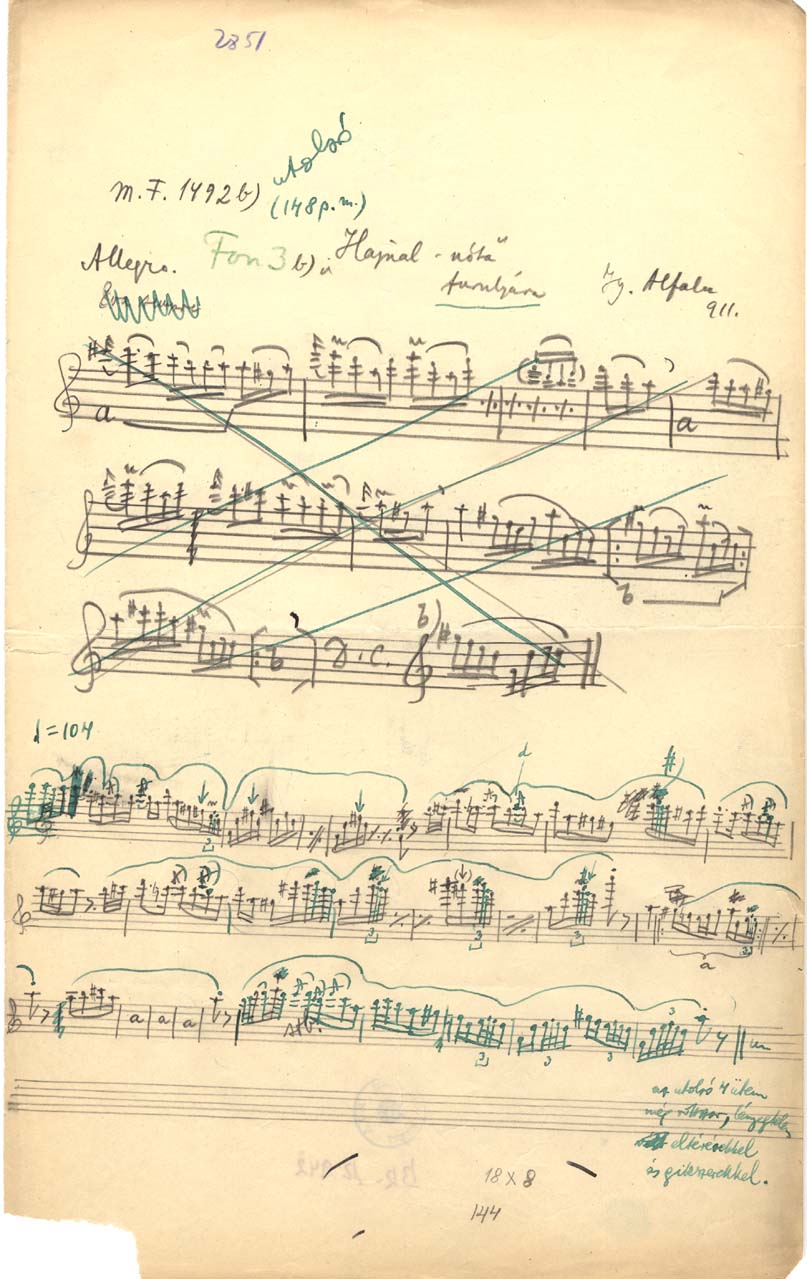 2851
utolsó
M. F. 1492 b)
(148 p. m.)
Allegro.
Fon 3 b) „Hajnal-nóta"
furulyára
Gy. Alfalu
911.
a
a
b
b
D. C. b)
♩=104
d
3
3
3
3
3
a
3
a a a
3
3
3
3
az utolsó 4 ütem
még sokszor, lényegtelen
eltérésekkel
és gikszerekkel.
18 x 8
144